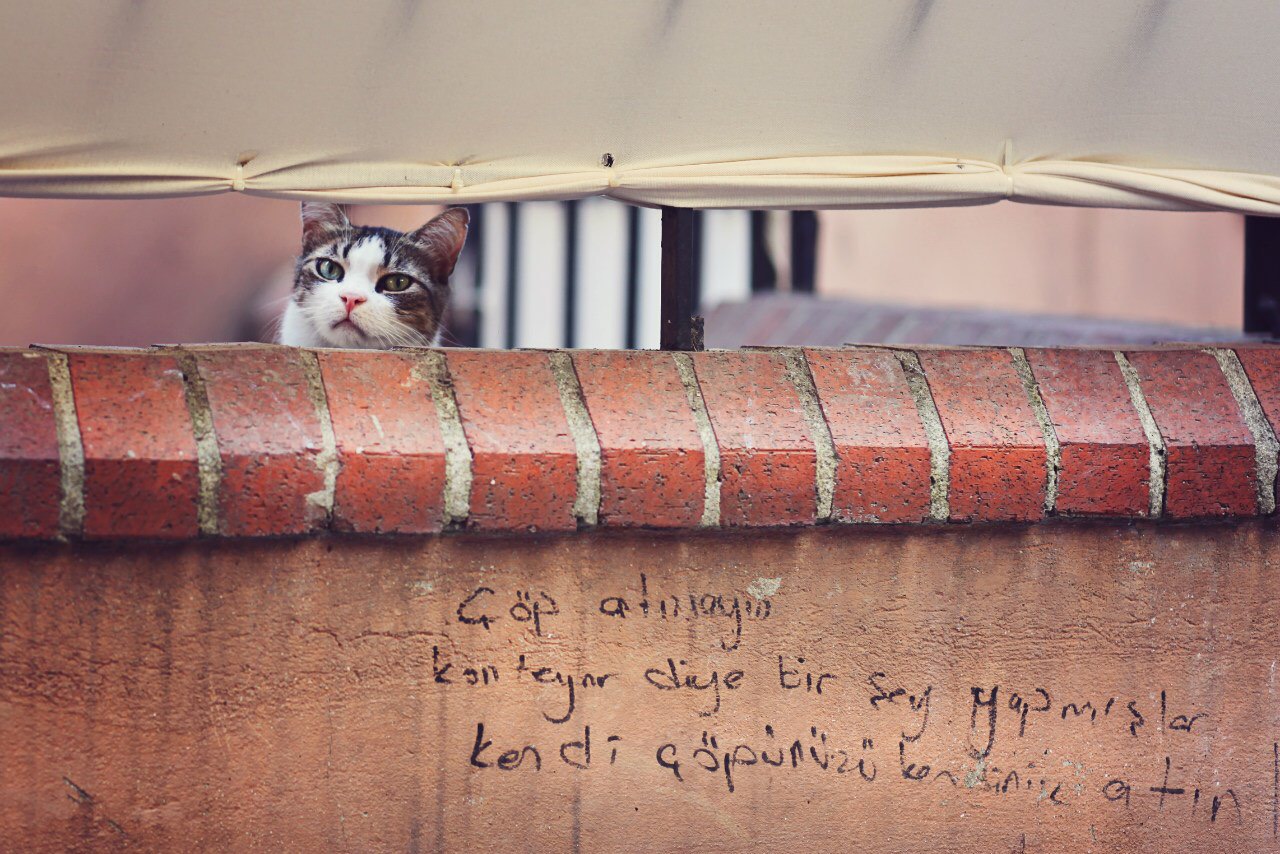 Çöp atmayın
konteynr diye bir şey yapmışlar
kendi çöpünüzü kendiniz atın